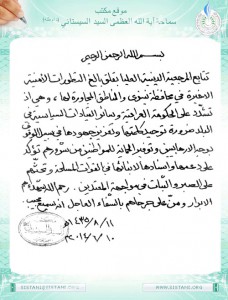 موقع مكتب
سماحة آية الله العظمى السيد السيستاني
بسم الله الرحمن الرحيم
تتابع المرجعية الدينية العليا بقلق بالغ التطورات الأمنية
الاخيرة في محافظة نينوى والمناطق المجاورة لها، وهي اذ
تشدد على الحكومة العراقية وسائر القيادات السياسية في
البلد ضرورة توحيد كلمتها وتعزيز جهودها في سبيل الوقوف
بوجه الارهابيين وتوفير الحماية للمواطنين من شرورهم تؤكد
على دعمها واسنادها لأبنائها في القوات المسلحة وتحثهم
على الصبر والثبات في مواجهة المعتدين. رحم الله شهداءهم
الابرار ومنّ على جرحاهم بالشفاء العاجل انه سميع مجيب
١١/٨/١٤٣٥هـ
١٠/٦/٢٠١٤م
WWW.SISTANI.ORG
WWW.SISTANI.ORG